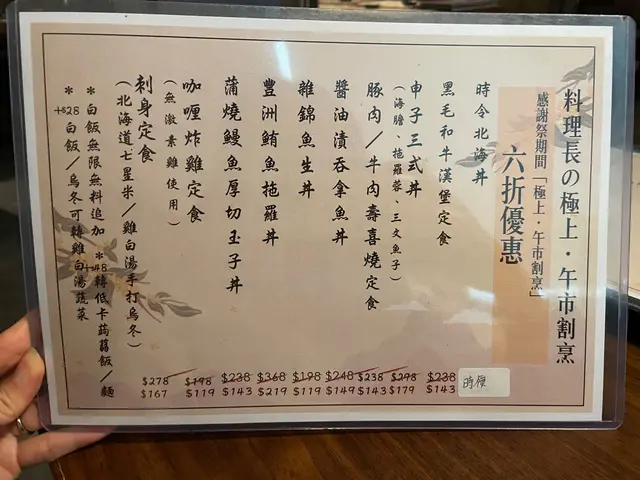 料理長の極上・午市割烹
感謝祭期間「極上・午市割烹」
六折優惠
時令北海丼 時價
黑毛和牛漢堡定食 $238 $143
申子三式丼 $298 $179
(海膽、拖羅蓉、三文魚子)
豚肉/牛肉壽喜燒定食 $238 $143
醬油漬吞拿魚丼 $248 $149
雜錦魚生丼 $198 $119
豐洲鮪魚拖羅丼 $368 $219
蒲燒鰻魚厚切玉子丼 $238 $143
咖喱炸雞定食 $198 $119
(無激素雞使用)
刺身定食 $278 $167
(北海道七星米/雞白湯手打烏冬)
*白飯無限無料追加 *+$48轉低卡蒟蒻飯/麵
*+$28白飯/烏冬可轉雞白湯蔬菜